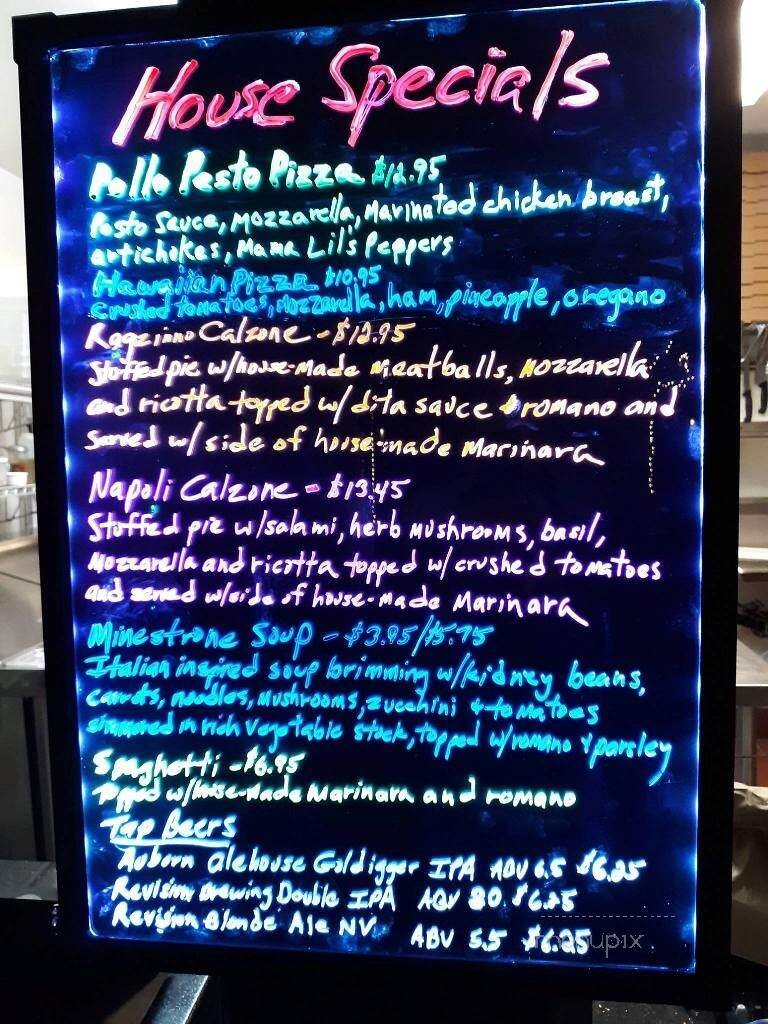 House Specials
Pollo Pesto Pizza $12.95
Pesto Sauce, Mozzarella, Marinated chicken breast,
artichokes, Mama Lil's Peppers
Hawaiian Pizza $10.95
Crushed tomatoes, Mozzarella, ham, pineapple, oregano
Calzone - $12.95
Stuffed pie w/house-made meatballs, Mozzarella
and ricotta topped w/ dita sauce & romano and
Served w/ side of house-made Marinara
Napoli Calzone - $13.45
Stuffed pie w/salami, herb mushrooms, basil,
Mozzarella and ricotta topped w/ crushed tomatoes
and served w/side of house-made Marinara
Minestrone Soup - $3.95/$5.75
Italian inspired soup brimming w/kidney beans,
carrots, noodles, mushrooms, zucchini & tomatoes
simmered in rich vegetable stock, topped w/romano & parsley
Spaghetti - $6.95
Topped w/house-made Marinara and romano
Tap Beers
Auburn alehouse Goldigger IPA ABV 6.5 $6.25
Revision Brewing Double IPA ABV 8.0 $6.25
Revision Blonde Ale NV ABV 5.5 $6.25